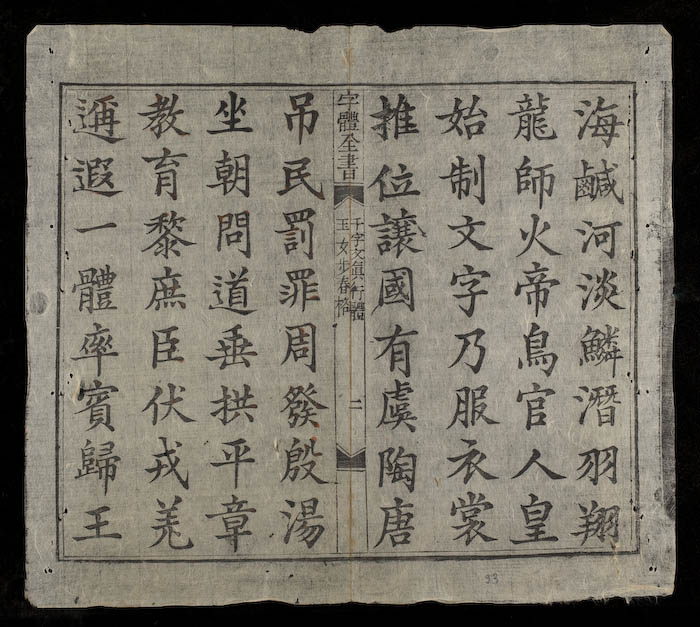 海鹹河淡鱗潛羽翔
龍師火帝鳥官人皇
始制文字乃服衣裳
推位讓國有虞陶唐
字體全書
千字文真行體
玉女步春格
二
吊民罰罪周發殷湯
坐朝問道垂拱平章
教育黎庶臣伏戎羌
邇遐一體率賓歸王
93